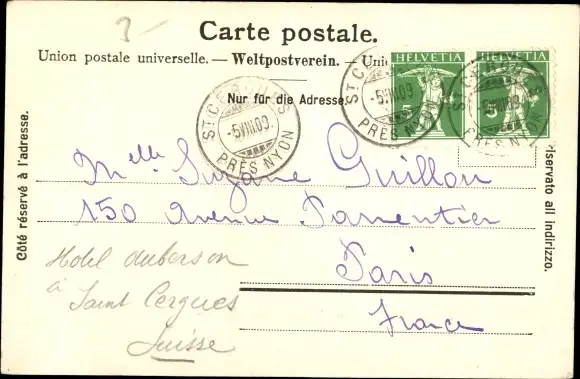 Carte postale.
Union postale universelle. — Weltpostverein. — Uni
Nur für die Adresse.
HELVETIA HELVETIA
5 5
ST CERGUES
-5.VIII.09.
PRÈS NYON
ST CERGUES
-5.VIII.09
PRÈS NYON
ST CERGUES
PRÈS NYON
Côté réservé à l'adresse.
riservato all indirizzo.
Melle Suzanne Guillon
150 Avenue Parmentier
Paris
France
Hotel Auberson
à Saint Cergues
Suisse